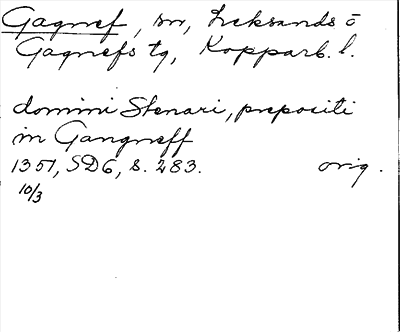 Gagnef, sn, Leksands o
Gagnefs tg, Kopparb. l.
domini Stenari, prepositi
in Gangneff
1351, SD6, s. 283. orig.
10/3